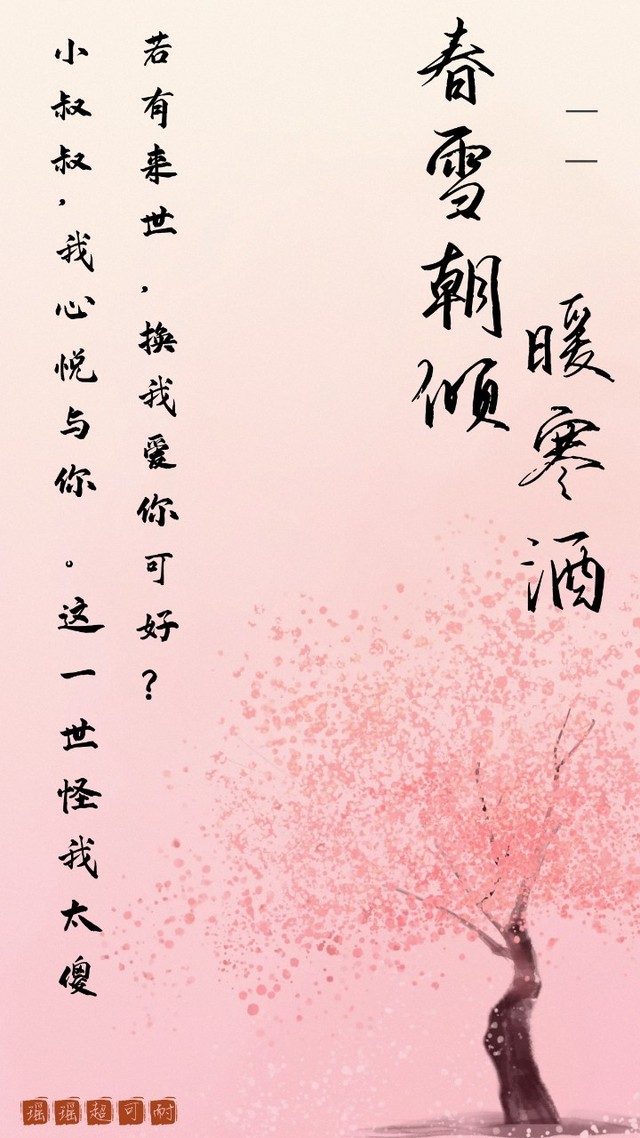 春雪朝倾
——暖寒酒
小叔叔，我心悦与你。这一世怪我太傻
若有来世，换我爱你可好？
瑶瑶超可耐